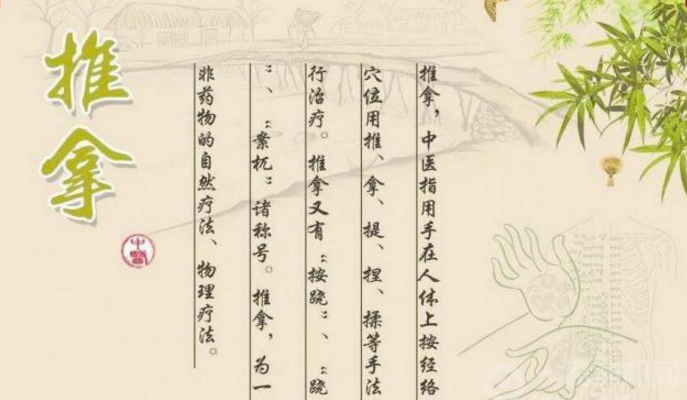 推拿
推拿，中医指用手在人体上按经络
穴位用推、拿、提、捏、揉等手法
行治疗。推拿又有“按跷”、“跷
”、“案杌”诸称号。推拿，为一
非药物的自然疗法、物理疗法。